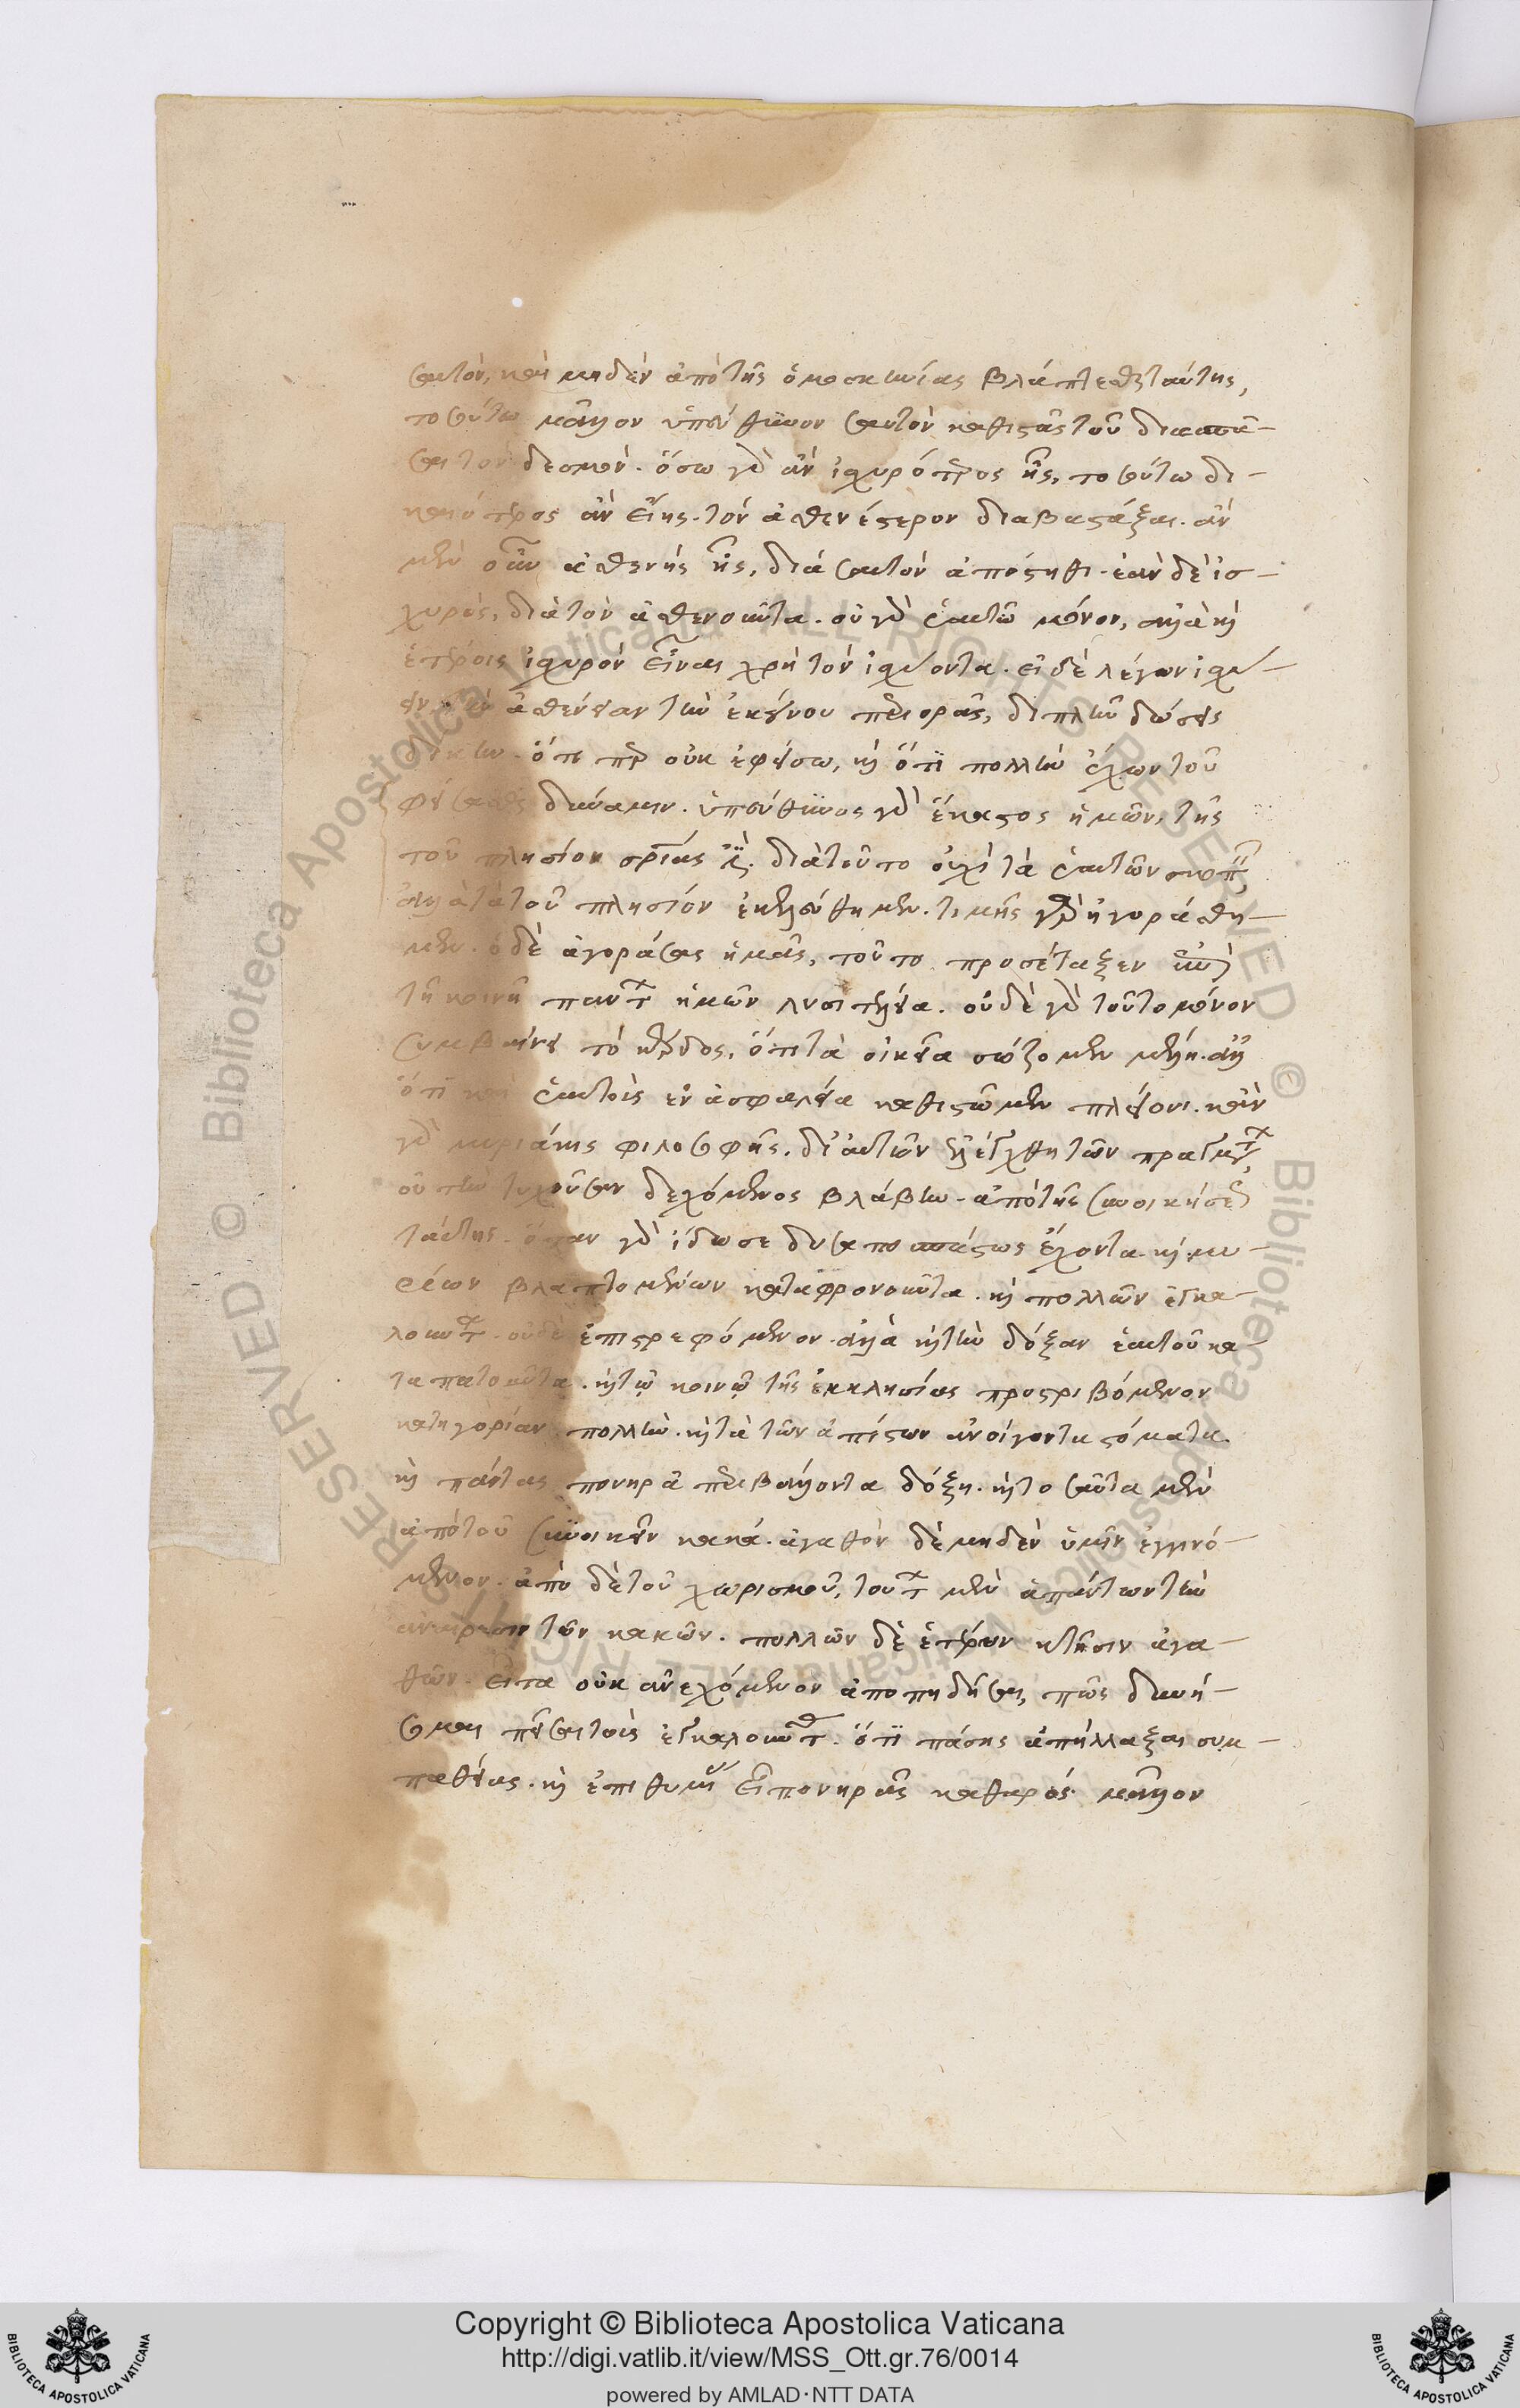 σαυτὸν, καὶ μηδὲν ἀπὸ τῆς ὁμοσκηνίας βλάπτεσθαι ταύτης,
τοσούτω μᾶλλον ὑπεύθυνον σαυτὸν καθιστᾶς τοῦ διασπά-
σαι τὸν δεσμόν. ὅσω γὰρ ἂν ἰσχυρότερος ῇς, τοσούτω δι-
καιότερος ἂν εἴης τὸν ἀσθενέστερον διαβαστάξαι. ἂν
μὲν οὖν ἀσθενὴς ῇς, διὰ σαυτὸν ἀπόστηθι. ἐὰν δὲ ἰσ-
χυρὸς, διὰ τὸν ἀσθενοῦντα. οὐ γὰρ ἑαυτῶ μόνον, ἀλλὰ καὶ
ἑτέροις ἰσχυρὸν εἶναι χρὴ τὸν ἰσχύοντα. εἰ δὲ λέγων ἰσχύ-
ειν τὴν ἀσθένειαν τὴν ἐκείνου περιορᾶς, διπλῆν δώσεις
δίκην. ὅτι περ οὐκ ἐφείσω, καὶ ὅτι πολλὴν ἔχων τοῦ
φείσασθαι δύναμιν. ὑπεύθυνος γὰρ ἕκαστος ἡμῶν, τῆς
τοῦ πλησίον σωτηρίας ἐστί. διὰ τοῦτο οὐχὶ τὰ ἑαυτῶν σκοπεῖν,
ἀλλὰ τὰ τοῦ πλησίον ἐκελεύσθημεν. τιμῆς γὰρ ἠγοράσθη-
μεν. ὁ δὲ ἀγοράσας ἡμᾶς, τοῦτο προσέταξεν
τῆ κοινῆ πάντων ἡμῶν λυσιτελεία. οὐδὲ γὰρ τοῦτο μόνον
συμβαίνει τὸ κέρδος, ὅτι τὰ οἰκεῖα σώζομεν μέλη. ἀλλ
ὅτι καὶ ἑαυτοὺς ἐν ἀσφαλεία καθιστῶμεν πλείονι. κἂν
γὰρ μυριάκις φιλοσοφῆς, δι αὐτῶν ἐλέγχθη τῶν πραγμάτων,
οὐ τὴν τυχοῦσαν δεχόμενος βλάβην ἀπὸ τῆς συνοικήσεως
ταύτης. ὅταν γὰρ ἴδω σε δυσαποσπάστως ἔχοντα. καὶ μυ-
ρίων βλαπτομένων καταφρονοῦντα. καὶ πολλῶν ἐγκα-
λούντων οὐδὲ ἐπιστρεφόμενον. ἀλλὰ καὶ τὴν δόξαν ἑαυτοῦ κα-
ταπατοῦντα. καὶ τῷ κοινῷ τῆς ἐκκλησίας προστριβόμενον
κατηγορίαν πολλὴν. καὶ τὰ τῶν ἀπίστων ἀνοίγοντα στόματα.
καὶ πάντας πονηρᾶ περιβάλλοντα δόξη. καὶ τοσαῦτα μὲν
ἀπὸ τοῦ συνοικεῖν κακά. ἀγαθὸν δὲ μηδὲν ὑμῖν ἐγγινό-
μενον. ἀπὸ δὲ τοῦ χωρισμοῦ, τούτων μὲν ἁπάντων τὴν
ἀναίρεσιν τῶν κακῶν. πολλῶν δὲ ἑτέρων κτῆσιν ἀγα-
θῶν. εἶτα οὐκ ἀνεχόμενον ἀποπηδῆσαι, πῶς δυνή-
σομαι πεῖσαι τοὺς ἐγκαλοῦντας. ὅτι πάσης ἀπήλλαξαι συμ-
παθείας. καὶ ἐπιθυμίας εἶ πονηρᾶς καθαρός. μᾶλλον
Copyright © Biblioteca Apostolica Vaticana
http://digi.vatlib.it/view/MSS_Ott.gr.76/0014
powered by AMLAD·NTT DATA